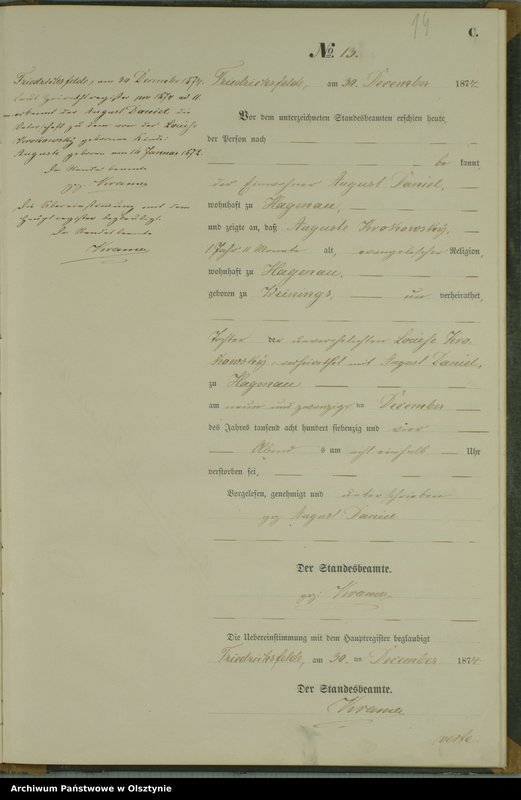 14
C.
No 13.
Friedrichsfelde, am 30 December 1874.
Laut Heirathsregister pro 1874 ad 11.
erkennt der August Daniel die
Vaterschaft zu dem von der Louise
Krokowsky geborenen Kinde
Auguste geboren am 16 Januar 1872.
Der Standesbeamte
gez. Kramer
Die Uebereinstimmung mit dem
Hauptregister beglaubigt.
Der Standesbeamte
Kramer
Friedrichsfelde, am 30. December 1874.
Vor dem unterzeichneten Standesbeamten erschien heute,
der Person nach
be kannt,
der Einwohner August Daniel,
wohnhaft zu Hagenau,
und zeigte an, daß Auguste Krokowsky,
1 Jahr 11 Monate alt, evangelischer Religion,
wohnhaft zu Hagenau,
geboren zu Weinings, un verheirathet,
Tochter der unverehelichten Louise Kro
kowsky, verheirathet mit August Daniel,
zu Hagenau
am neun und zwanzigs ten December
des Jahres tausend acht hundert siebenzig und vier
Abend s um acht einhalb Uhr
verstorben sei,
Vorgelesen, genehmigt und unterschrieben
gez August Daniel
Der Standesbeamte.
gez: Kramer
Die Uebereinstimmung mit dem Hauptregister beglaubigt
Friedrichsfelde, am 30. ten December 1874
Der Standesbeamte.
Kramer
verte.
Archiwum Państwowe w Olsztynie